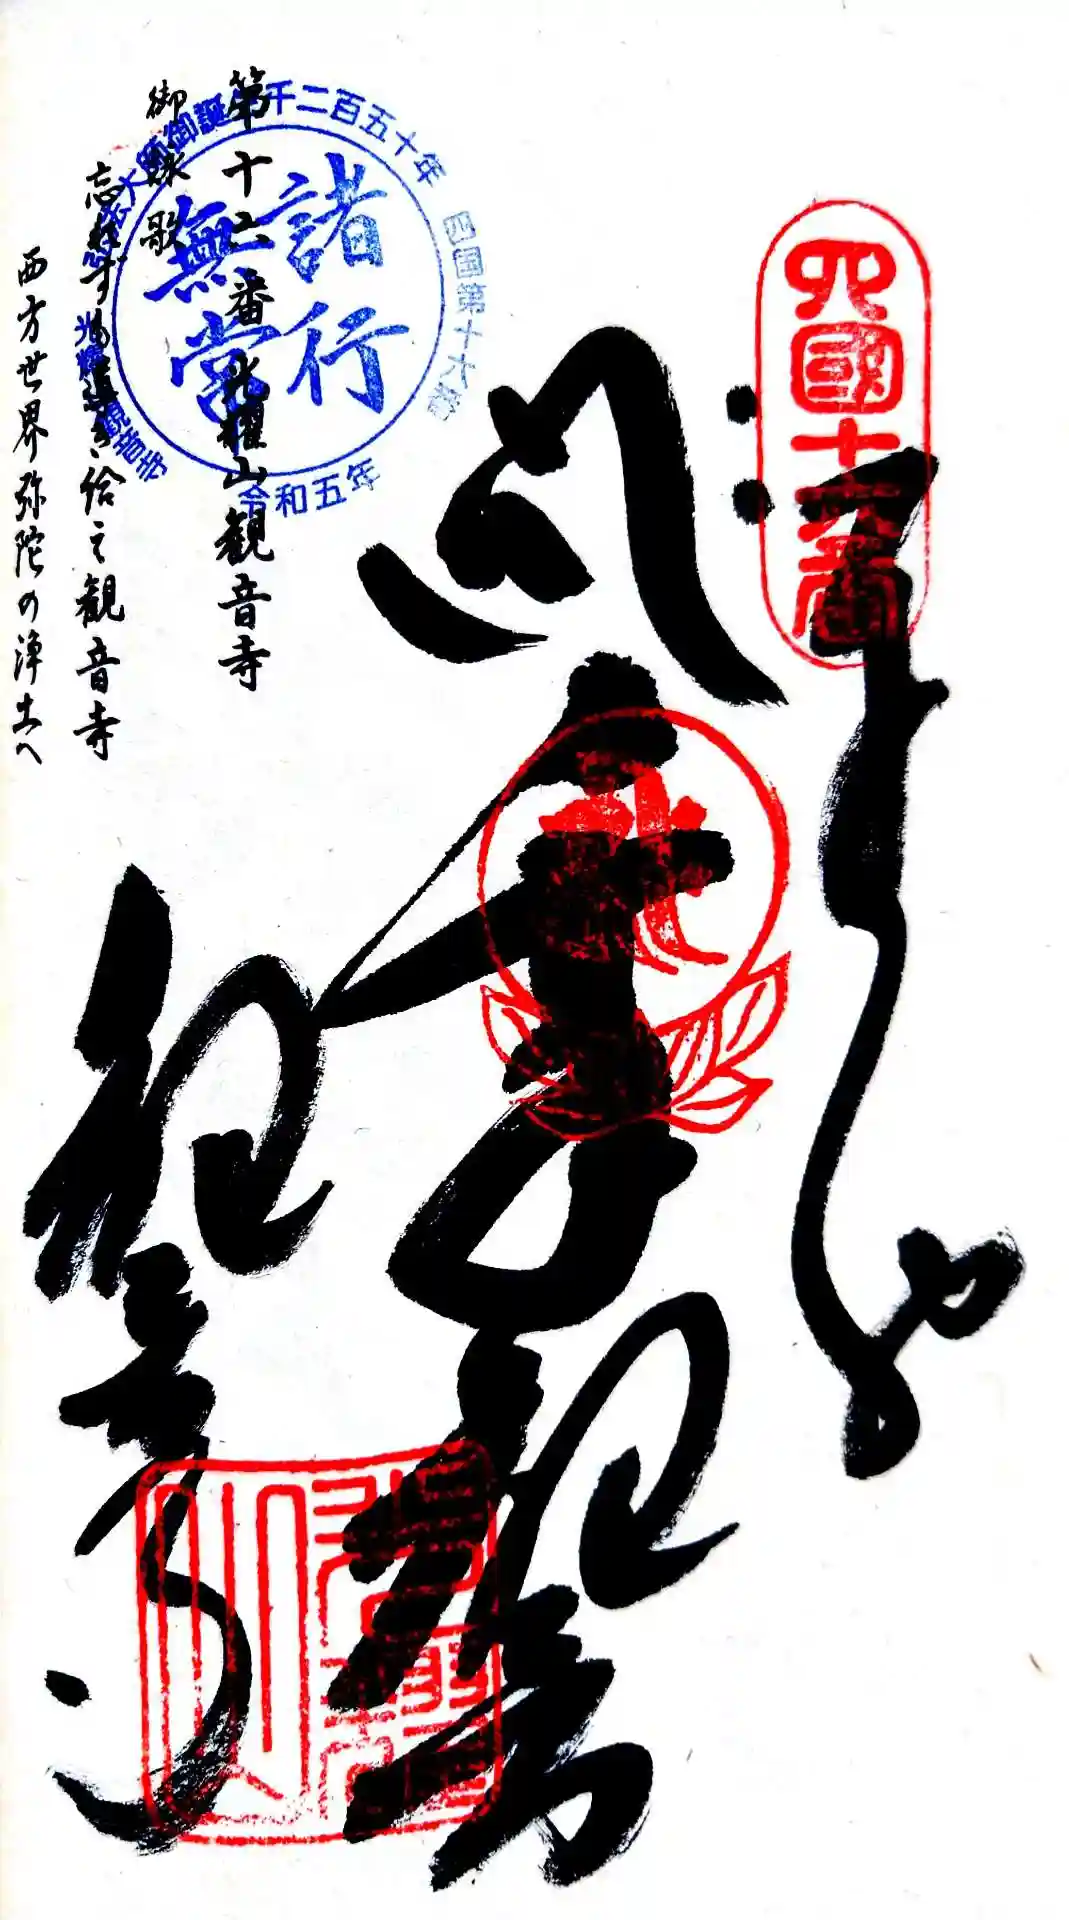 四國十六番
奉
千手観音
観音寺
弘法大師御誕生千二百五十年
四国第十六番
諸行
無常
令和五年
光耀山観音寺
第十六番光耀山観音寺
御詠歌
忘れずも導き給え観音寺
西方世界弥陀の浄土へ